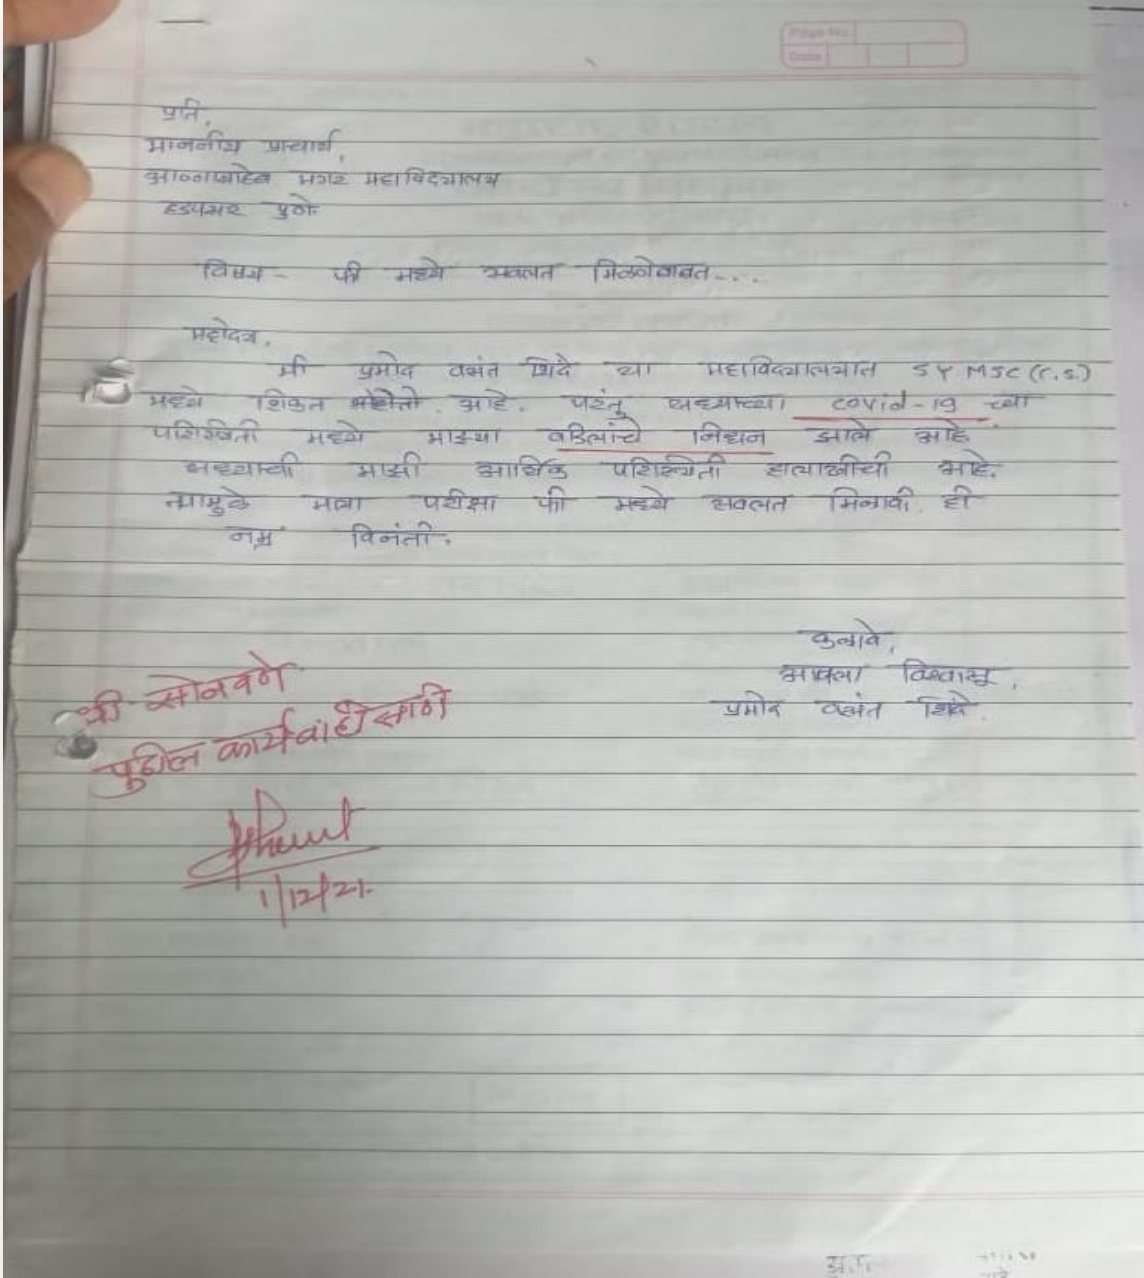 Page No.
Date
प्रति,
माननीय प्राचार्य,
आण्णासाहेब मगर महाविद्यालय
हडपसर पुणे.
विषय - फी मध्ये सवलत मिळणेबाबत....
महोदय,
मी प्रमोद वसंत शिंदे या महाविद्यालयात SY MSC (C.S.)
मध्ये शिकत आहे. परंतु सध्याच्या covid-19 च्या
परिस्थिती मध्ये माझ्या वडिलांचे निधन झाले आहे.
सध्याची माझी आर्थिक परिस्थिती हालाखीची आहे.
त्यामुळे मला परीक्षा फी मध्ये सवलत मिळावी. ही
नम्र विनंती.
कळावे,
आपला विश्वासू,
प्रमोद वसंत शिंदे.
श्री सोनवणे
पुढील कार्यवाहीसाठी
1/12/21.